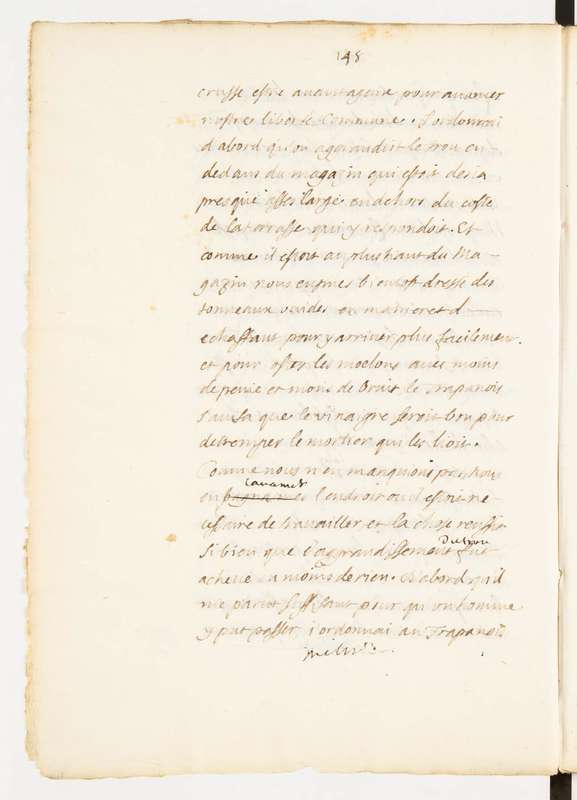 148
crusse estre avantageux pour avancer
nostre liberté Commune. J'ordonnai
d'abord qu'on agrandist le trou en-
dedans du magazin qui estoit desia
presque assés large en dehors du costé
de la terrasse qui y respondoit. Et
comme il estoit au plus haut du Ma-
gazin nous eusmes bientost dressé des
tonneaux vuides en maniere d'
echaffaut pour y arriver plus facilement.
et pour oster les moelons avec moins
de peine et moins de bruit le Trapanois
s'avisa que le vinaigre seroit bon pour
detremper le mortier qui les lioit.
Comme nous n'en manquions pas nous
lavames
en l'endroit ou il estoit ne-
cessaire de travailler et la chose reussit
Du trou
Si bien que l'agrandissement fut
achevé en moins de rien. D'abord qu'il
me parut suffisant pour qu'un homme
y put passer, j'ordonnai au Trapanois